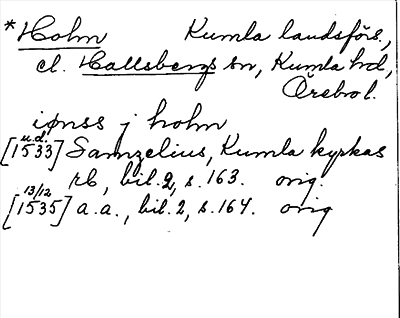 *Holm Kumla landsförs.,
cl. Hallsbergs sn, Kumla hd,
Örebro l.
iønss j holm
u.d.
[1533] Samzelius, Kumla kyrkas
rb, bil. 2, s. 163. orig.
13/12
[1535] a.a., bil. 2, s. 164. orig